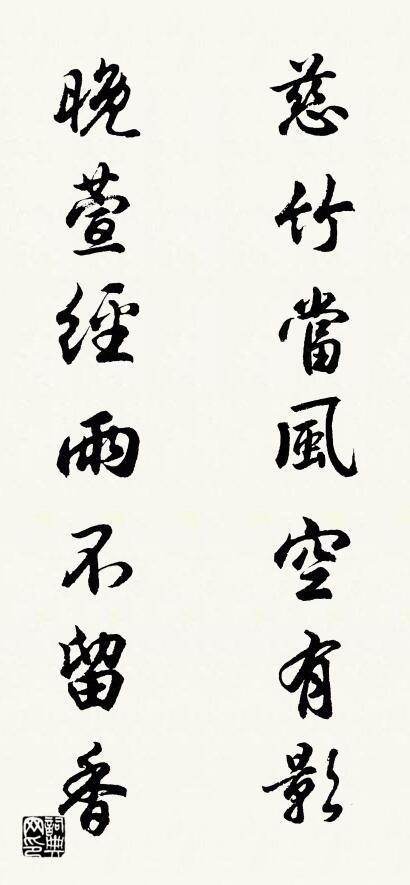 慈竹當風空有影
晚萱經雨不留香
詞典网印